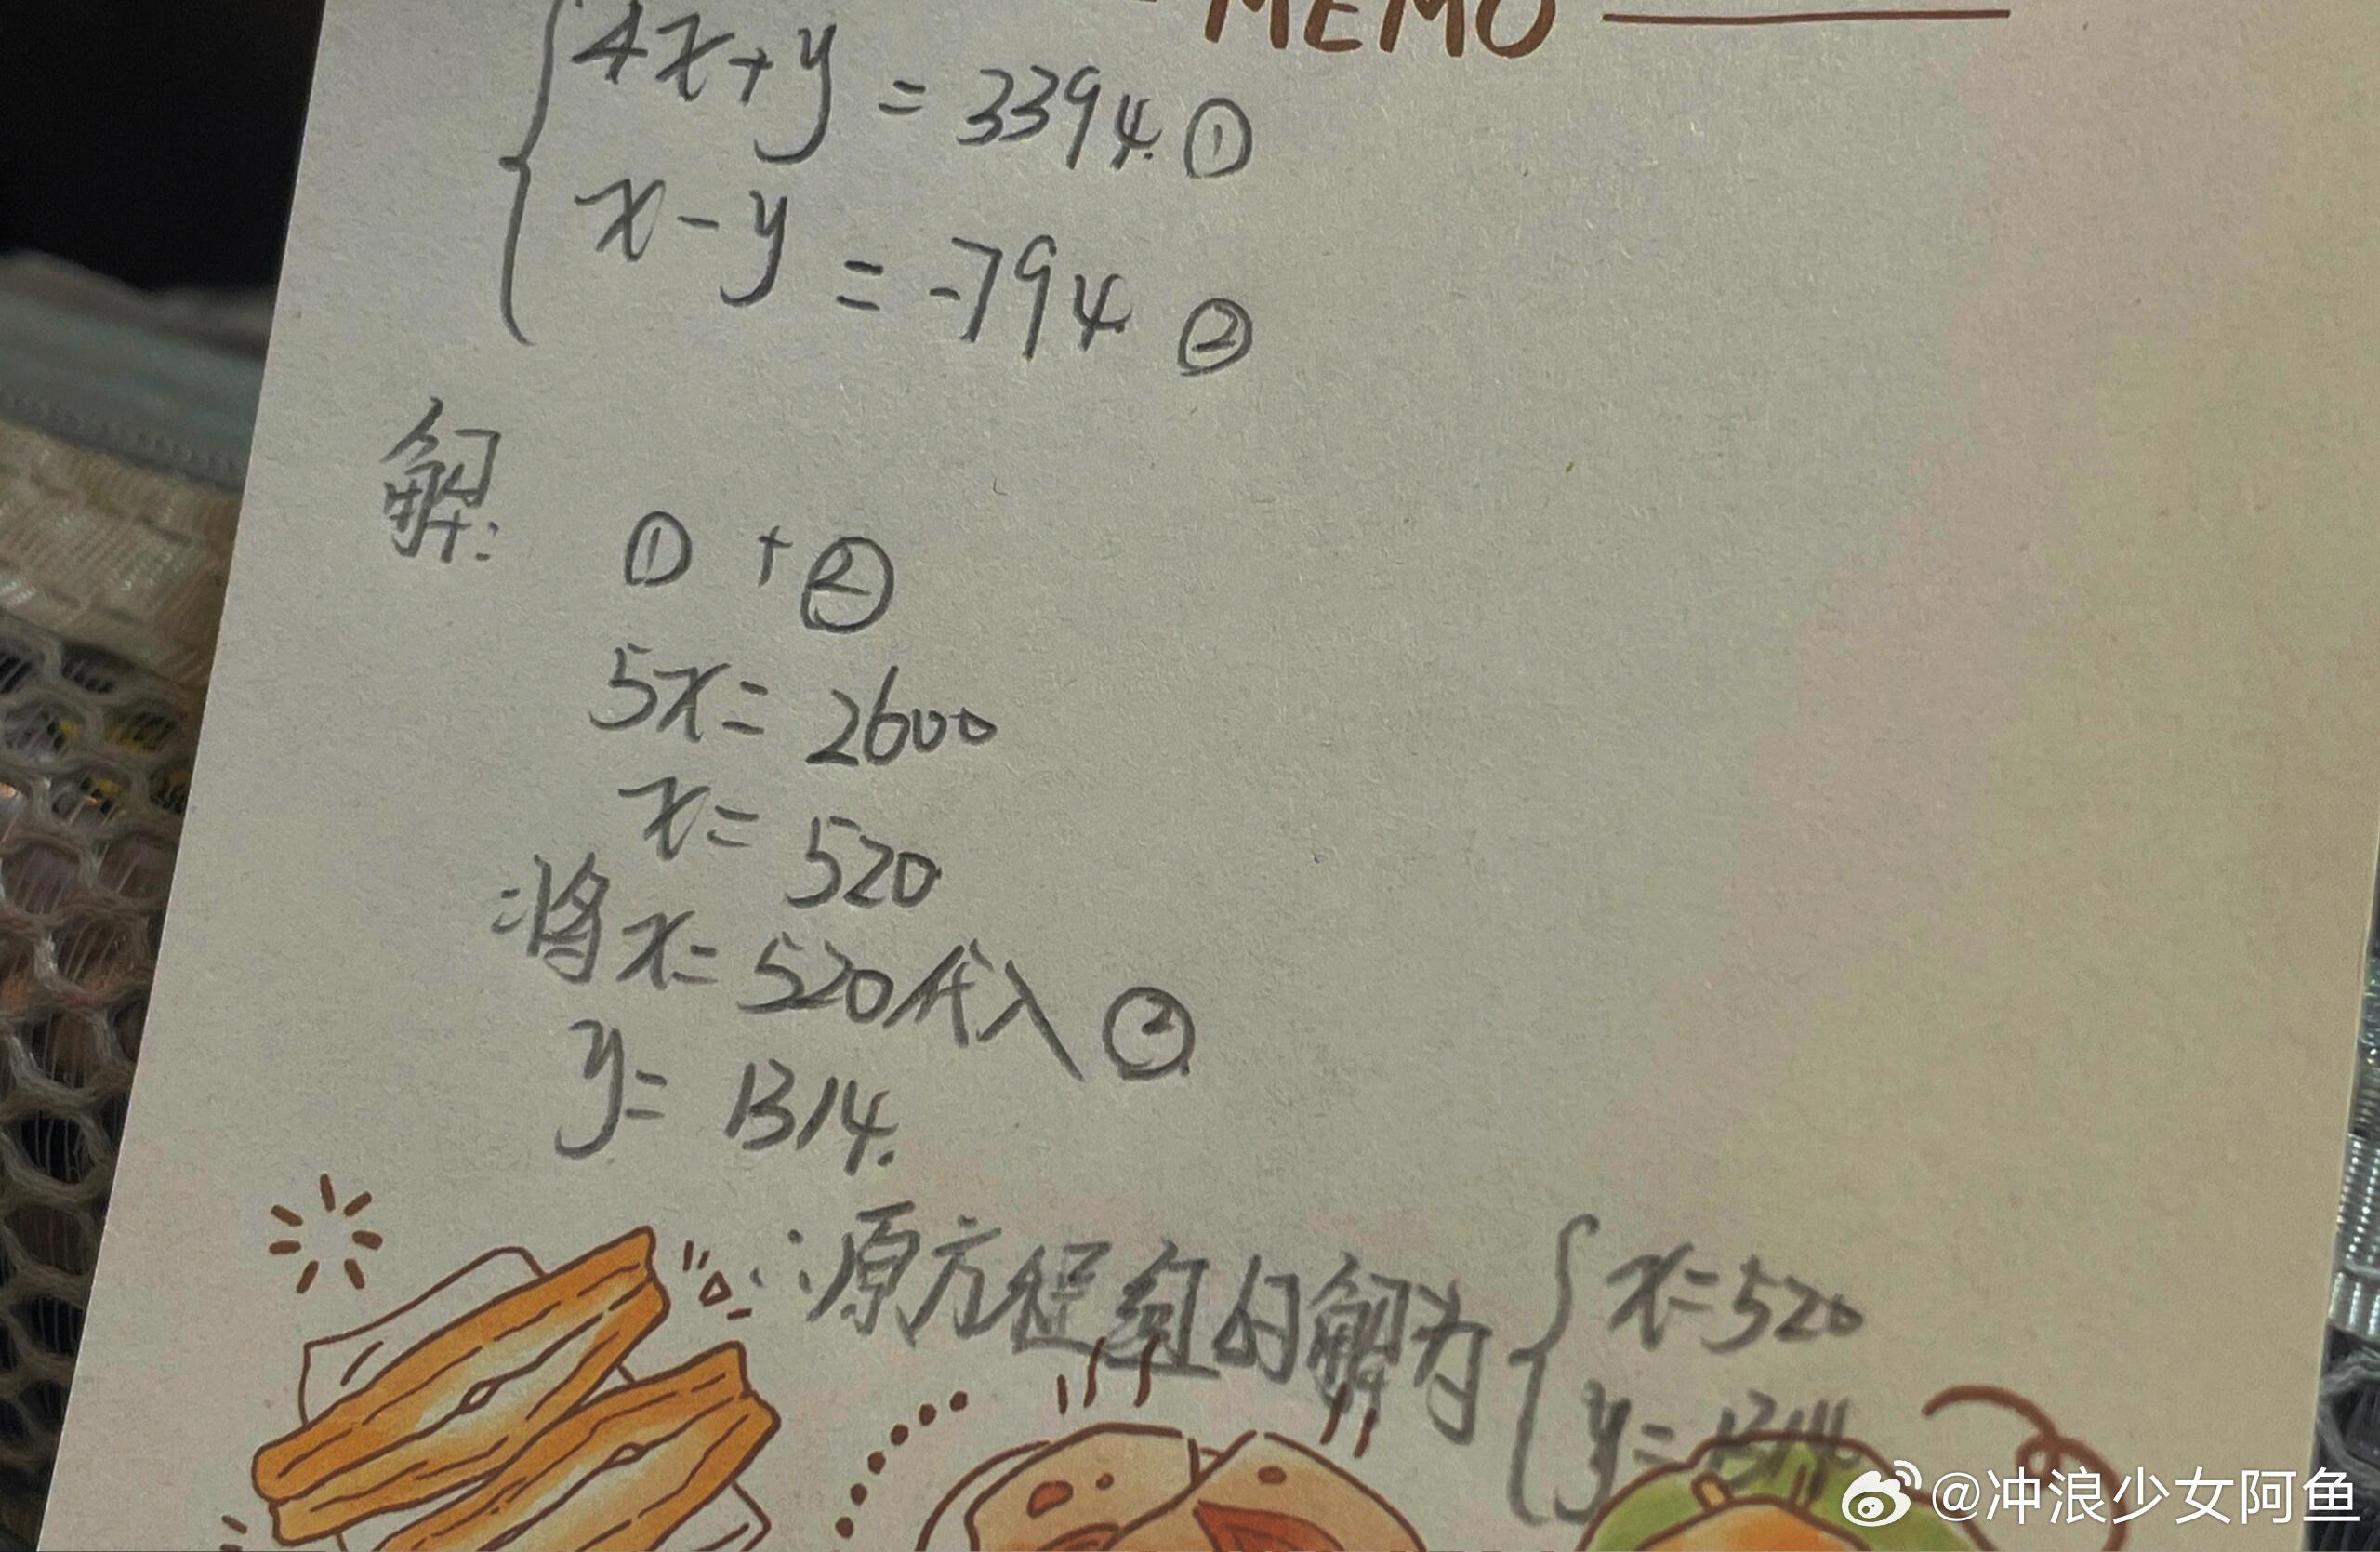 MEMO
4x+y = 3394 ①
x-y = -794 ②
解:
① + ②
5x= 2600
x= 520
将x=520代入②
y= 1314.
∴原方程组的解为{x=520
y=1314
@冲浪少女阿鱼